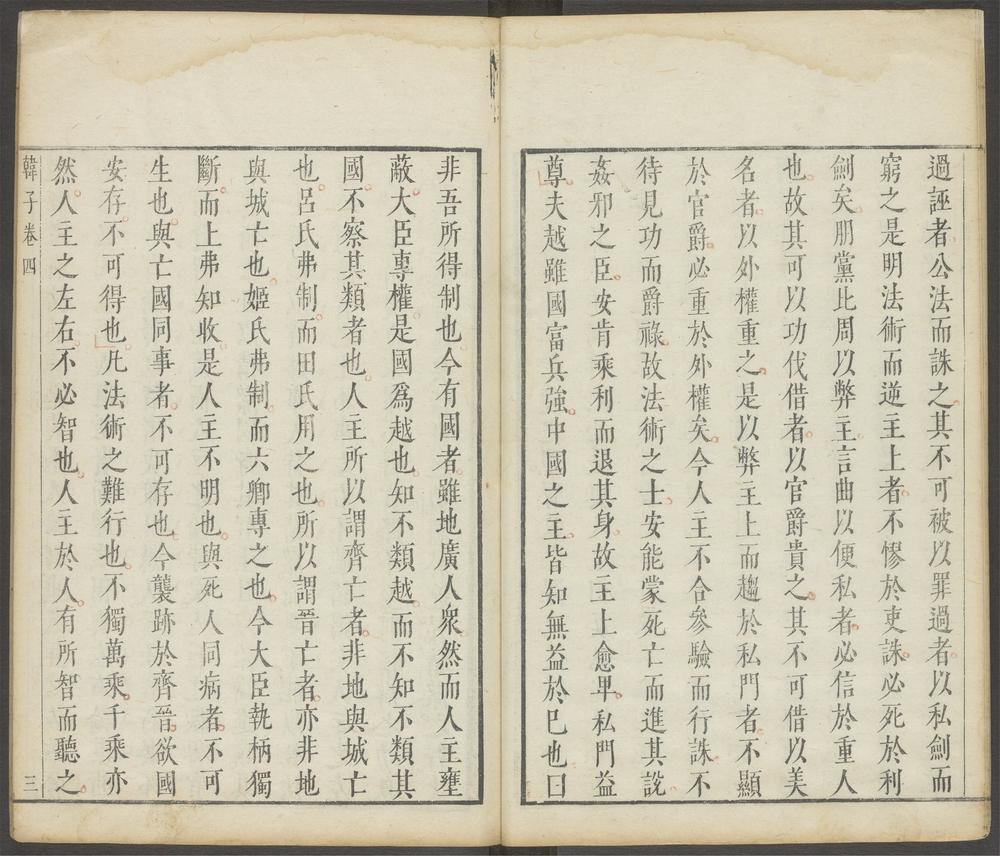 過誣者公法而誅之其不可被以罪過者以私劍而
窮之是明法術而逆主上者不僇於吏誅必死於利
劍矣朋黨比周以弊主言曲以便私者必信於重人
也故其可以功伐借者以官爵貴之其不可借以美
名者以外權重之是以弊主上而趨於私門者不顯
於官爵必重於外權矣今人主不合參驗而行誅不
待見功而爵祿故法術之士安能蒙死亡而進其說
姦邪之臣安肯乘利而退其身故主上愈卑私門益
尊夫越雖國富兵強中國之主皆知無益於已也曰
非吾所得制也今有國者雖地廣人衆然而人主壅
蔽大臣專權是國爲越也知不類越而不知不類其
國不察其類者也人主所以謂齊亡者非地與城亡
也呂氏弗制而田氏用之也所以謂晉亡者亦非地
與城亡也姬氏弗制而六卿專之也今大臣執柄獨
斷而上弗知收是人主不明也與死人同病者不可
生也與亡國同事者不可存也今襲跡於齊晉欲國
安存不可得也凡法術之難行也不獨萬乘千乘亦
然人主之左右不必智也人主於人有所智而聽之
韓子卷四 三